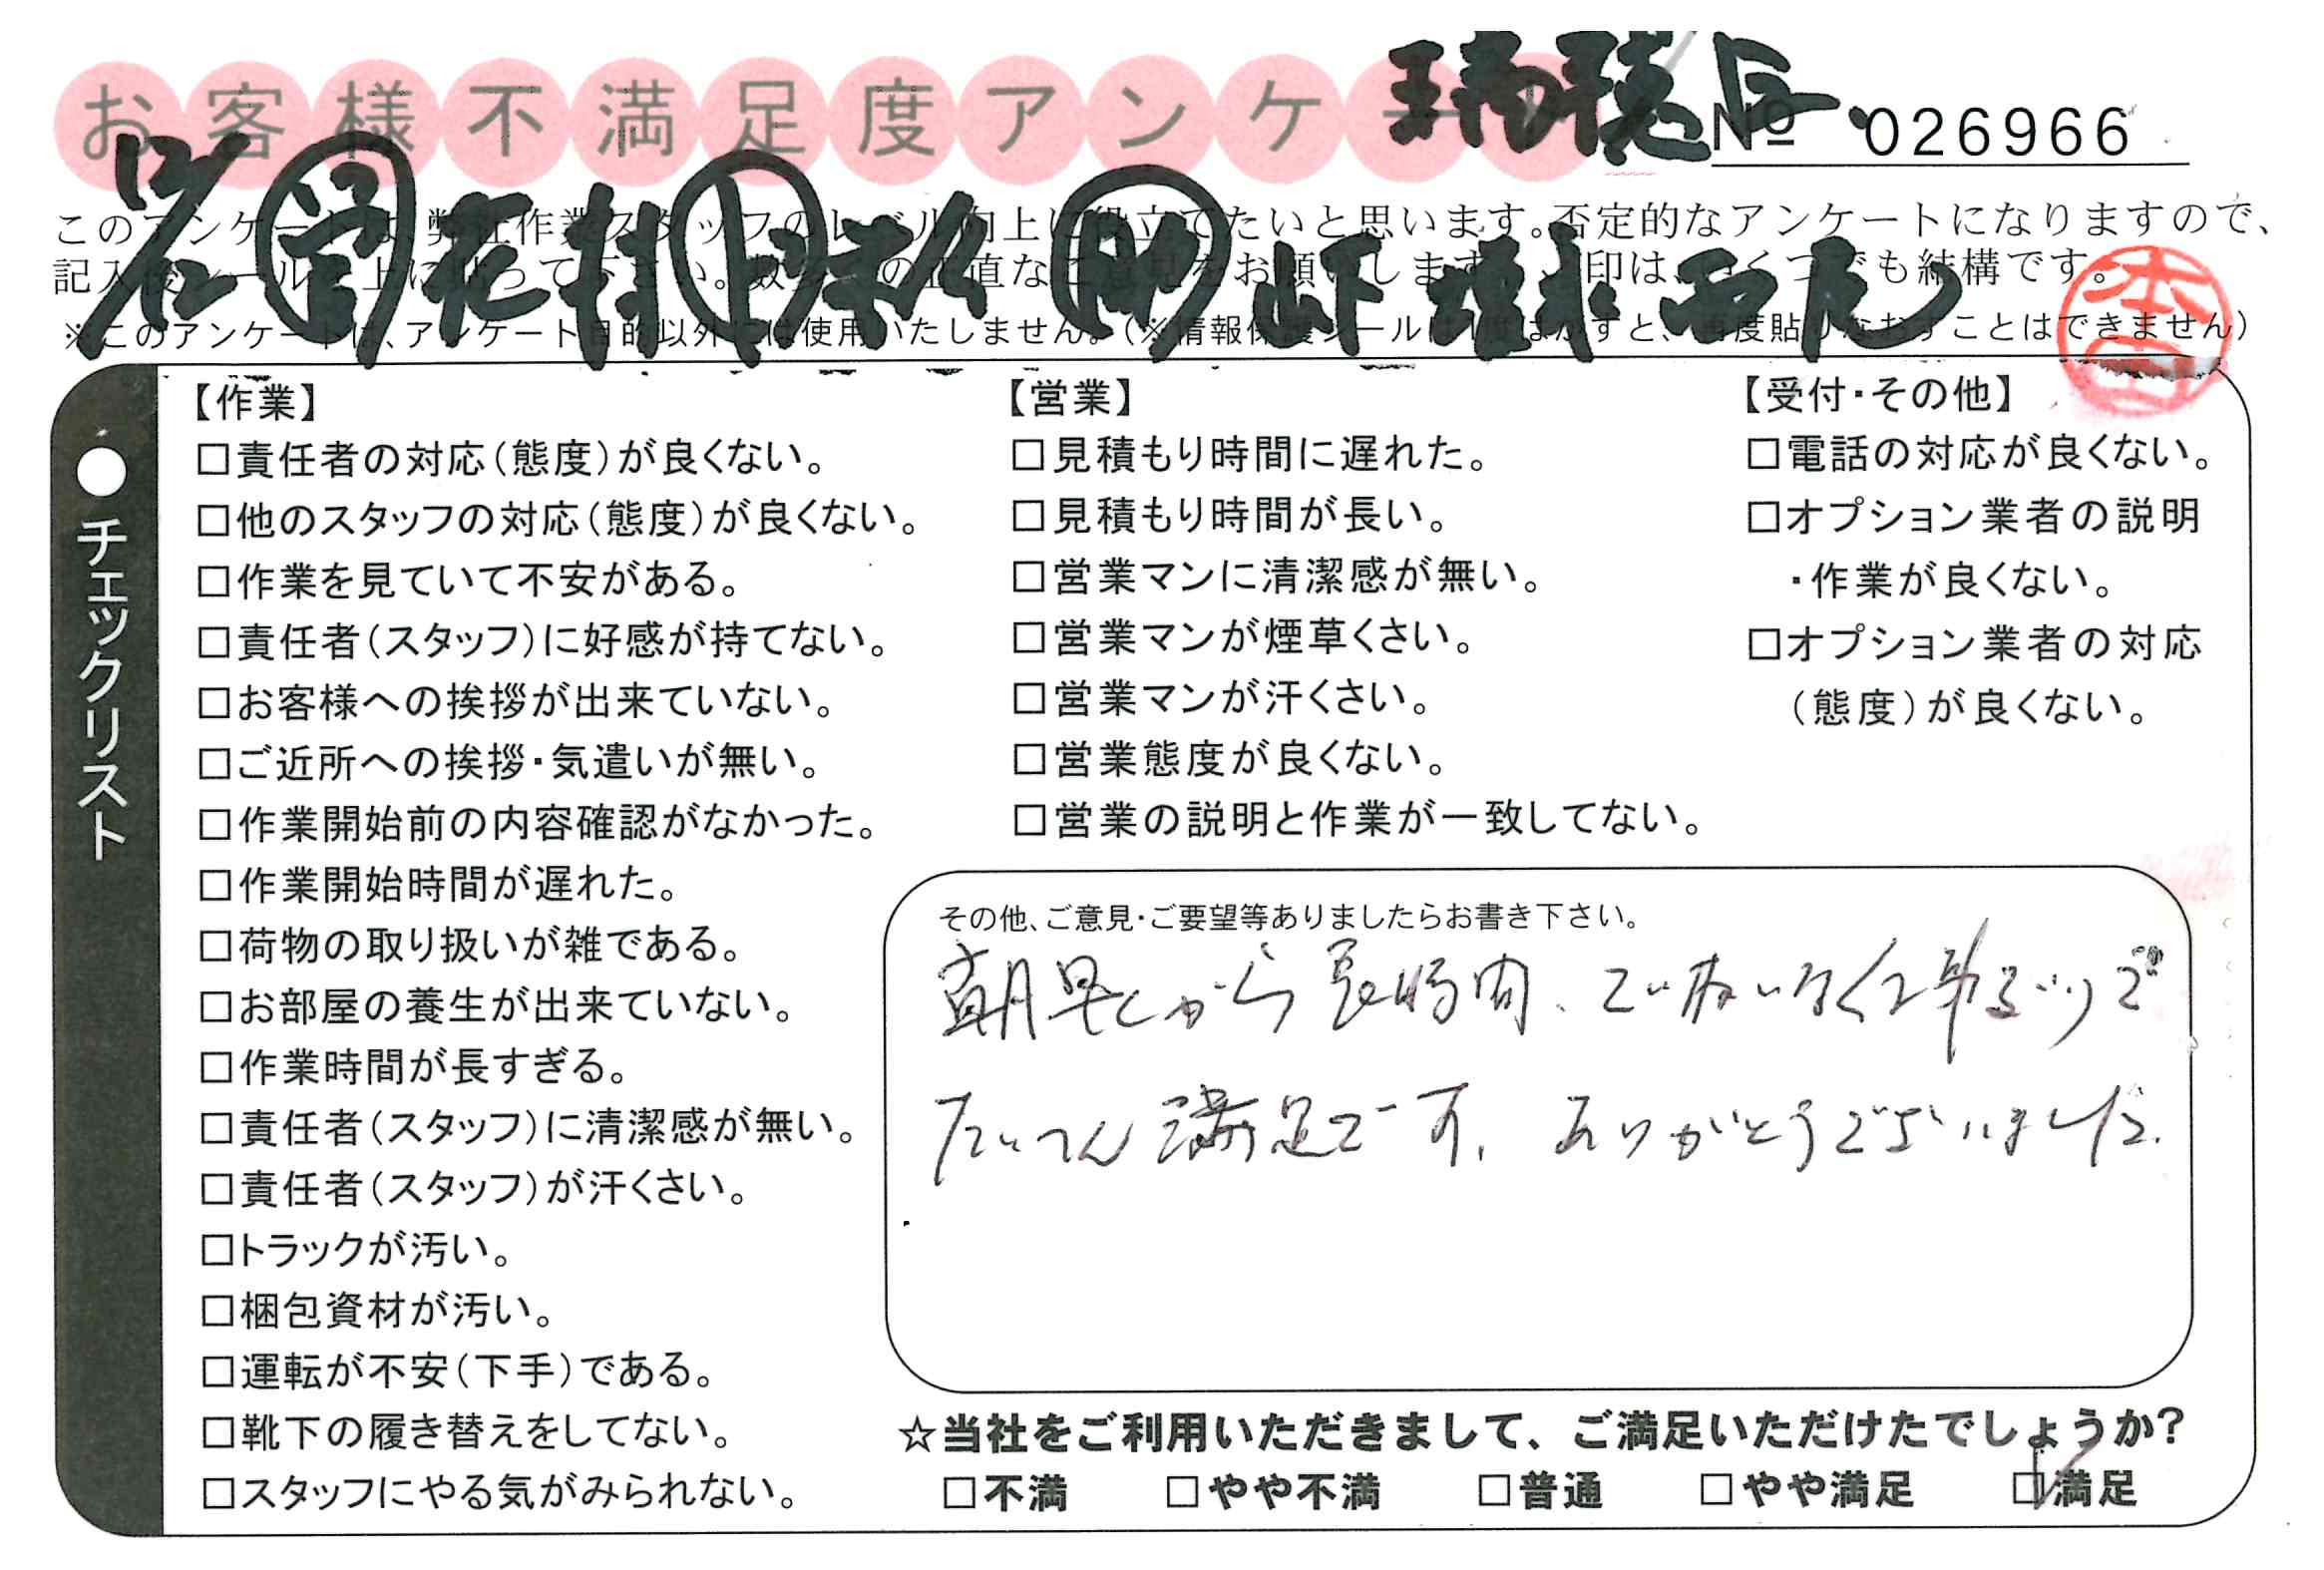 お客様不満足度アンケ
瑞穂区.
№ 026966
このアンケートは 弊社作業スタッフのレベル向上に役立てたいと思います。否定的なアンケートになりますので、
記入後シール 上に貼って下さい。 の 直なご意見をお願いします 印は、いくつでも結構です。
※このアンケートは、アンケート目的以外には使用いたしません。(※情報保護シールは1度はがすと、再度貼りなおすことはできません)
西尾
●チェックリスト
【作業】
□責任者の対応(態度)が良くない。
□他のスタッフの対応(態度)が良くない。
□作業を見ていて不安がある。
□責任者(スタッフ)に好感が持てない。
□お客様への挨拶が出来ていない。
□ご近所への挨拶・気遣いが無い。
□作業開始前の内容確認がなかった。
□作業開始時間が遅れた。
□荷物の取り扱いが雑である。
□お部屋の養生が出来ていない。
□作業時間が長すぎる。
□責任者(スタッフ)に清潔感が無い。
□責任者(スタッフ)が汗くさい。
□トラックが汚い。
□梱包資材が汚い。
□運転が不安(下手)である。
□靴下の履き替えをしてない。
□スタッフにやる気がみられない。
【営業】
□見積もり時間に遅れた。
□見積もり時間が長い。
□営業マンに清潔感が無い。
□営業マンが煙草くさい。
□営業マンが汗くさい。
□営業態度が良くない。
□営業の説明と作業が一致してない。
【受付・その他】
□電話の対応が良くない。
□オプション業者の説明
・作業が良くない。
□オプション業者の対応
(態度)が良くない。
その他、ご意見・ご要望等ありましたらお書き下さい。
朝早くから長時間、ていねいな で
たいへん満足です。ありがとうございました.
☆当社をご利用いただきまして、ご満足いただけたでしょうか?
□不満 □やや不満 □普通 □やや満足 ☑満足